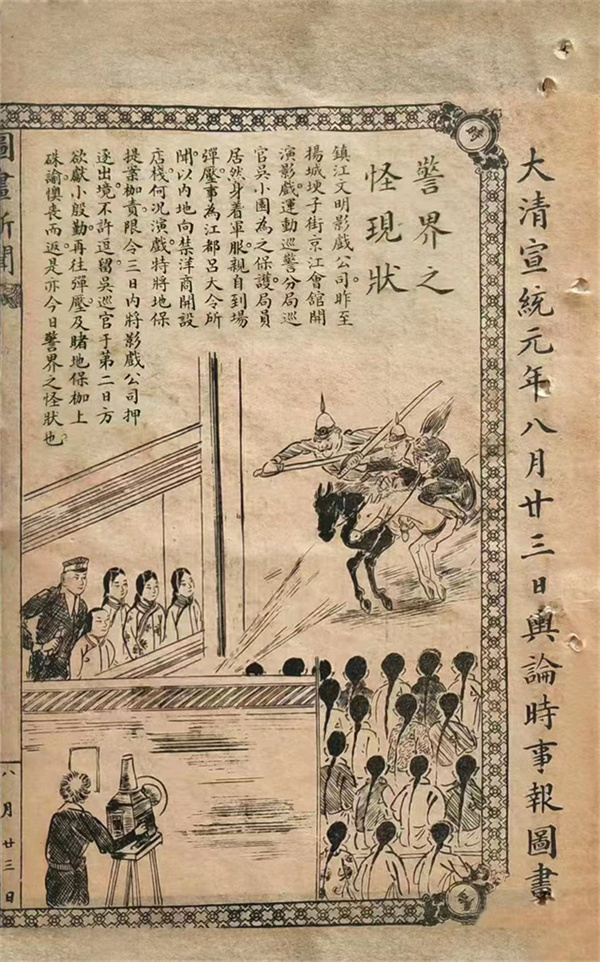 大清宣統元年八月廿三日輿論時事報圖畫
警界之
怪現狀
鎮江文明影戲公司昨至
揚城埂子街京江會館開
演影戲運動巡警分局巡
官吳小園為之保護局員
居然身着軍服親自到場
彈壓事為江都呂大令所
聞以内地向禁洋商開設
店栈何况演戲特將地保
提案枷責限令三日內將影戲公司押
逐出境不許逗留吳巡官于第二日方
欲獻小殷勤再往彈壓及睹地保枷上
硃諭懊喪而返是亦今日警界之怪狀也
圖畫新聞
八月廿三日